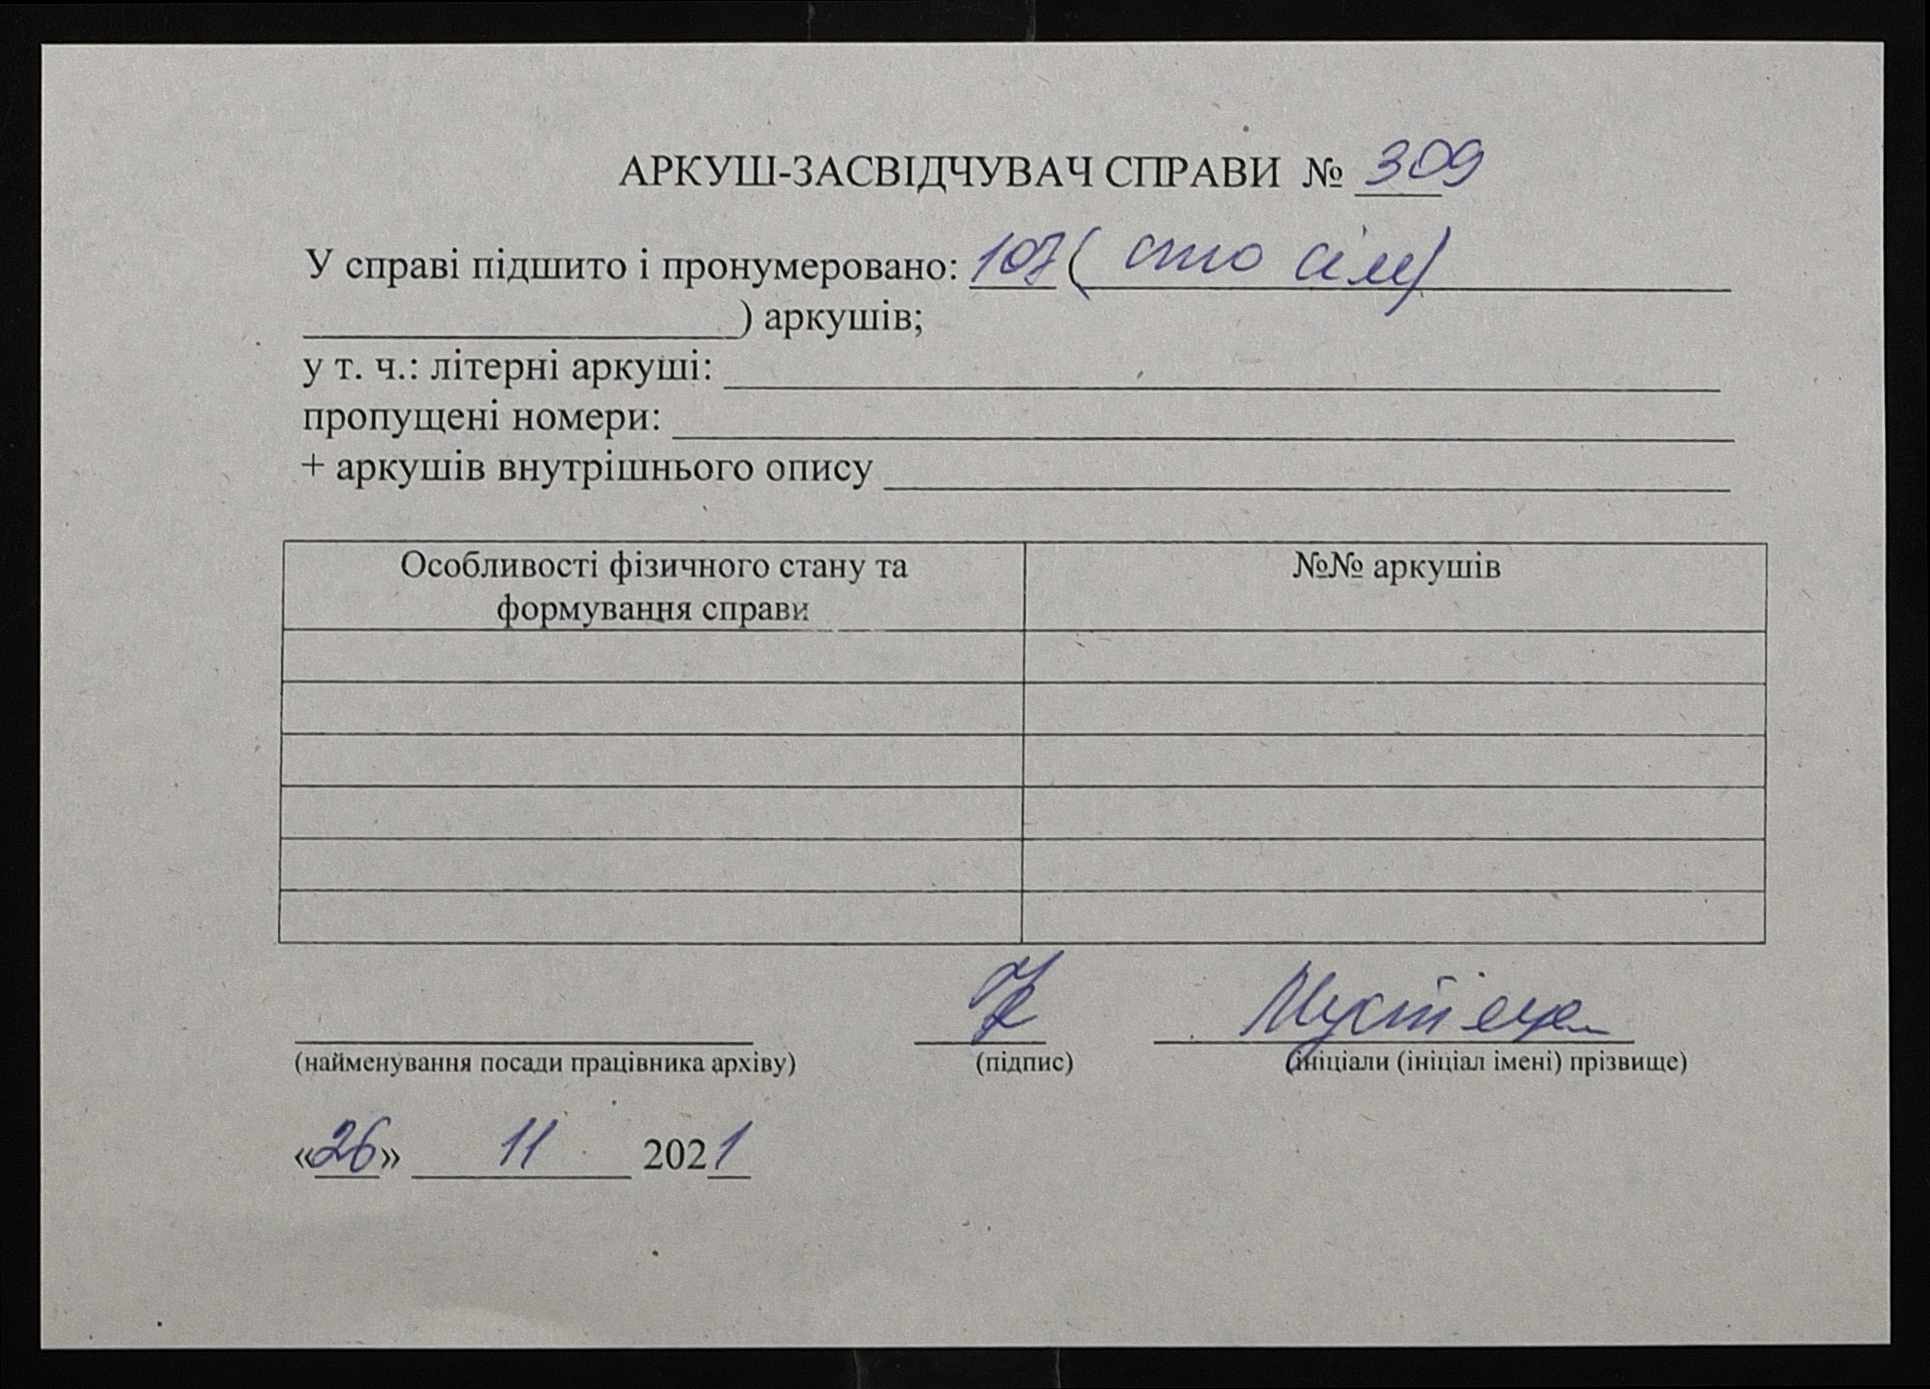 АРКУШ-ЗАСВІДЧУВАЧ СПРАВИ № 309
У справі підшито і пронумеровано: 107 ( сто сім)
) аркушів;
у т. ч.: літерні аркуші:
пропущені номери:
+ аркушів внутрішнього опису
Особливості фізичного стану та
формування справи
№№ аркушів
(найменування посади працівника архіву)
(підпис)
(ініціали (ініціал імені) прізвище)
«26» 11 2021